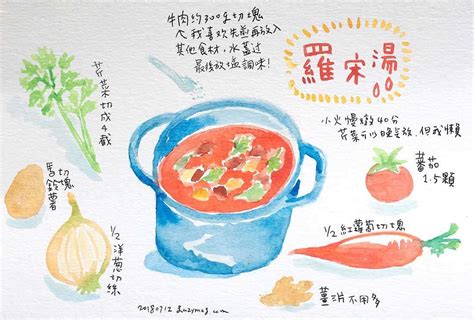 牛肉約300g切塊
我喜歡先煎再放入
其他食材,水蓋過
最後放塩調味!
羅宋湯
小火慢燉40分
芹菜可以晚点放,但我懶
芹菜切成4截
馬鈴薯
切塊
蕃茄
1.5顆
1/2 洋蔥切絲
1/2 紅蘿蔔切塊
薑3片不用多
20180712 suzymog.com